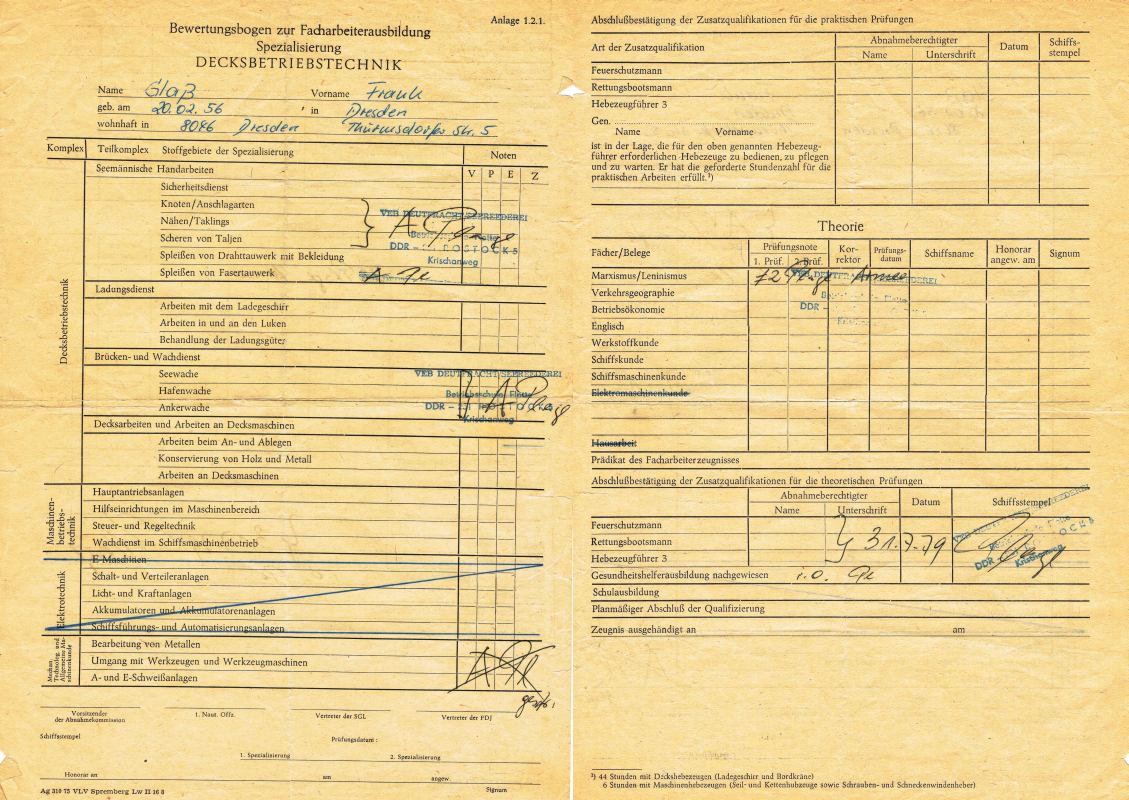 Anlage 1.2.1.
Bewertungsbogen zur Facharbeiterausbildung
Spezialisierung
DECKSBETRIEBSTECHNIK
Name Glaß Vorname Frank
geb. am 20.02.56 in Dresden
wohnhaft in 8046 Dresden Thürmsdorfer Str. 5
Komplex Teilkomplex Stoffgebiete der Spezialisierung Noten
V P E Z
Decksbetriebstechnik
Seemännische Handarbeiten
Sicherheitsdienst
Knoten/Anschlagarten
Nähen/Taklings
Scheren von Taljen
Spleißen von Drahttauwerk mit Bekleidung
Spleißen von Fasertauwerk
VEB DEUTFRACHT/SEEREEDEREI
DDR – ROSTOCK 5
Krischanweg
Ladungsdienst
Arbeiten mit dem Ladegeschirr
Arbeiten in und an den Luken
Behandlung der Ladungsgüter
Brücken- und Wachdienst
Seewache
Hafenwache
Ankerwache
VEB DEUTFRACHT/SEEREEDEREI
Betriebsschule Flotte
DDR – ROSTOCK 5
Krischanweg
Decksarbeiten und Arbeiten an Decksmaschinen
Arbeiten beim An- und Ablegen
Konservierung von Holz und Metall
Arbeiten an Decksmaschinen
Maschinen-
betriebs-
technik
Hauptantriebsanlagen
Hilfseinrichtungen im Maschinenbereich
Steuer- und Regeltechnik
Wachdienst im Schiffsmaschinenbetrieb
Elektrotechnik
E-Maschinen
Schalt- und Verteileranlagen
Licht- und Kraftanlagen
Akkumulatoren und Akkumulatorenanlagen
Schiffsführungs- und Automatisierungsanlagen
Bearbeitung von Metallen
Umgang mit Werkzeugen und Werkzeugmaschinen
A- und E-Schweißanlagen
Vorsitzender
der Abnahmekommission
1. Naut. Offz.
Vertreter der SGL
Vertreter der FDJ
Schiffsstempel
Prüfungsdatum:
1. Spezialisierung 2. Spezialisierung
Honorar an am angew.
Signum
Ag 310 75 VLV Spremberg Lw II 16 8
Abschlußbestätigung der Zusatzqualifikationen für die praktischen Prüfungen
Art der Zusatzqualifikation Abnahmeberechtigter Datum Schiffs-
stempel
Name Unterschrift
Feuerschutzmann
Rettungsbootsmann
Hebezeugführer 3
Gen.
Name Vorname
ist in der Lage, die für den oben genannten Hebezeug-
führer erforderlichen Hebezeuge zu bedienen, zu pflegen
und zu warten. Er hat die geforderte Stundenzahl für die
praktischen Arbeiten erfüllt.¹)
Theorie
Fächer/Belege Prüfungsnote Kor-
rektor Prüfungs-
datum Schiffsname Honorar
angew. am Signum
1. Prüf. 2. Prüf.
Marxismus/Leninismus
Verkehrsgeographie
Betriebsökonomie
Englisch
Werkstoffkunde
Schiffskunde
Schiffsmaschinenkunde
Elektromaschinenkunde
Hausarbeit
Prädikat des Facharbeiterzeugnisses
Abschlußbestätigung der Zusatzqualifikationen für die theoretischen Prüfungen
Abnahmeberechtigter Datum Schiffsstempel
Name Unterschrift
Feuerschutzmann
Rettungsbootsmann 31.7.79
Hebezeugführer 3
Gesundheitshelferausbildung nachgewiesen
Schulausbildung
Planmäßiger Abschluß der Qualifizierung
Zeugnis ausgehändigt an am
¹) 44 Stunden mit Deckshebezeugen (Ladegeschirr und Bordkräne)
6 Stunden mit Maschinenhebezeugen (Seil- und Kettenhubzeuge sowie Schrauben- und Schneckenwindenheber)